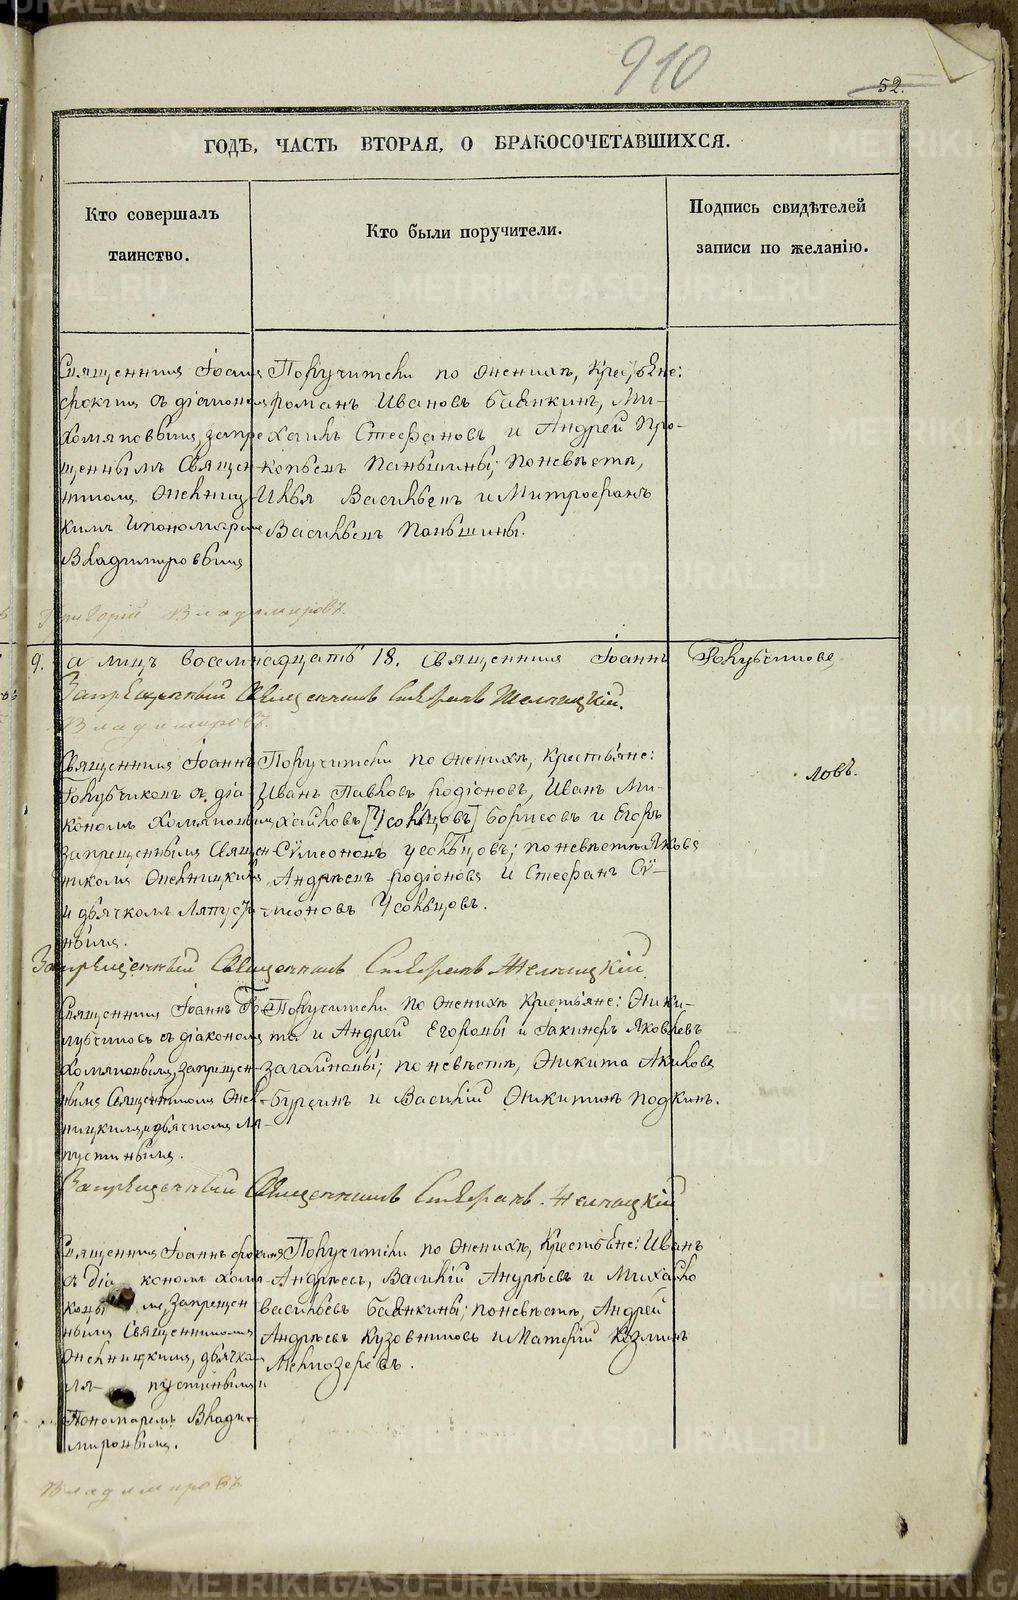 910
52.
ГОДѢ, ЧАСТЬ ВТОРАЯ, О БРАКОСОЧЕТАВШИХСЯ.
Кто совершалъ
таинство.
Кто были поручители.
Подпись свидѣтелей
записи по желанію.
Священникъ Іоаннъ
съ діакономъ
Хомяковымъ, запре-
щеннымъ Священ-
никомъ
кимъ и пономаремъ
Владимировымъ
Поручители по женихѣ, Крестьяне:
Романъ Ивановъ Бабкинъ, Ми-
хаилъ Стефановъ и Андрей Про-
копьевъ Паньшины; по невѣстѣ,
Илья Васильевъ и Митрофанъ
Васильевъ Паньшины.
Григорій Владимировъ.
9.
а лицъ восемнадцать 18. Священникъ Іоаннъ Голубчиковъ
Запрещенный Священникъ
Владимировъ.
Священникъ Іоаннъ
Голубчиковъ съ діа-
кономъ Хомяковымъ
запрещеннымъ Священ-
никомъ
и дьячкомъ Ляпусти-
нымъ.
Поручители по женихѣ, Крестьяне:
Иванъ Павловъ Родіоновъ, Иванъ Ми-
хайловъ [Усольцовъ] Борисовъ и Егоръ
Сѵмеоновъ Усольцовъ; по невѣстѣ Яковъ
Андреевъ Родіоновъ и Стефанъ Сѵ-
меоновъ Усольцовъ.
ловъ.
Запрещенный Священникъ
Священникъ Іоаннъ Го-
лубчиковъ съ діакономъ
Хомяковымъ, запрещен-
нымъ Священникомъ
и дьячкомъ Ля-
пустинымъ.
Поручители по женихѣ Крестьяне: Ники-
та и Андрей Егоровы и Іакинфъ Яковлевъ
Загайновы; по невѣстѣ, Никита
и Василій Никитинъ
Запрещенный Священникъ
Священникъ Іоаннъ
съ діакономъ Хомя-
ковымъ, Запрещен-
нымъ Священникомъ
дьячкомъ
Ляпустинымъ и
Пономаремъ Влади-
мировымъ.
Поручители по женихѣ, Крестьяне: Иванъ
Андреевъ, Василій Андреевъ и Михайло
Васильевъ Бабкины; по невѣстѣ, Андрей
Андреевъ Кузовниковъ и
Владимировъ
METRIKI.GASO-URAL.RU